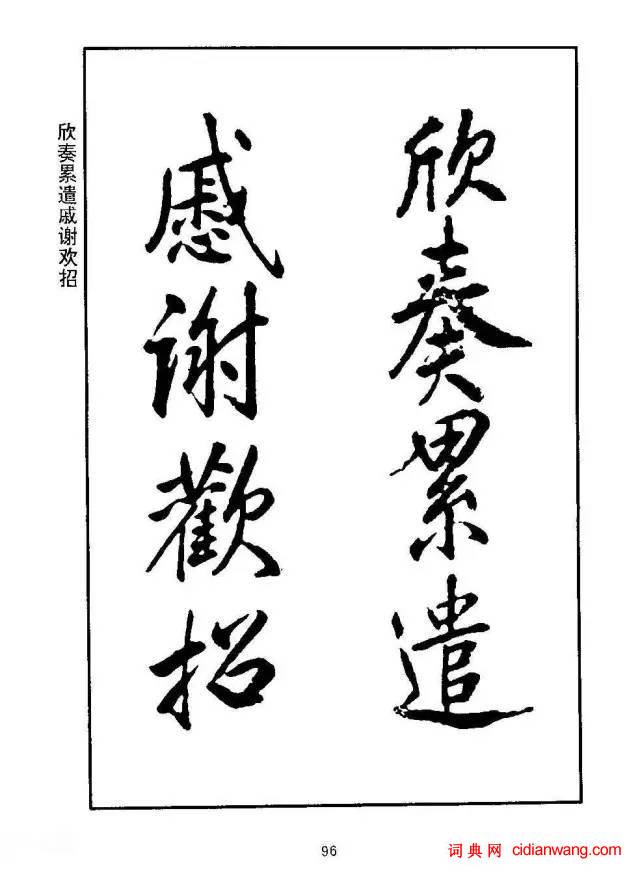 欣奏累遣
慼谢歡招
欣奏累遣戚谢欢招
96
词典网 cidianwang.com